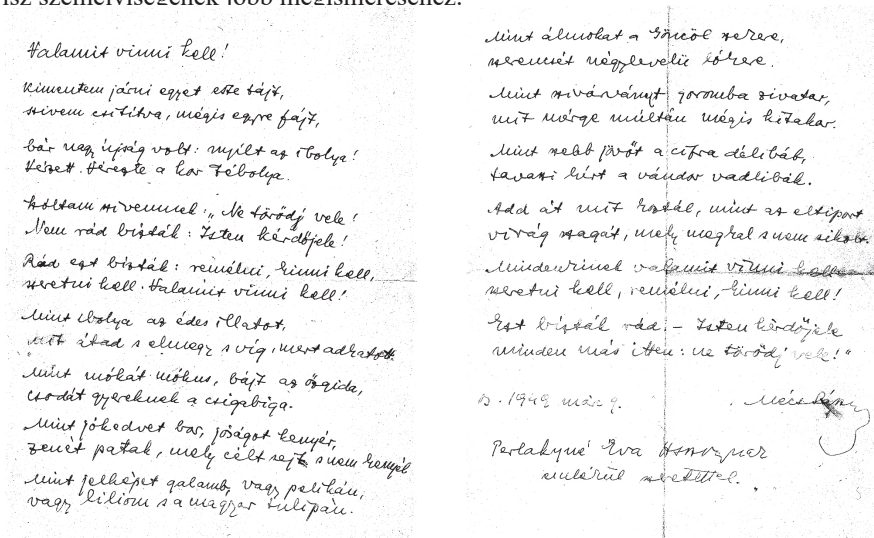 isz személyiségének jobb megismeréséhez.
Valamit vinni kell!
Kimentem járni egyet este tájt,
szivem csititva, mégis egyre fájt,
bár nagy ujság volt: nyilt az ibolya!
Vérzett. Véreste a kor tébolya.
Szóltam szivemnek: „Ne törődj vele!
Nem rád bizták: Isten kérdőjele!
Rád ezt bizták: remélni, hinni kell,
szeretni kell. Valamit vinni kell!
Mint ibolya az édes illatot,
mit átad s elmegy s vig, mert adhatott.
Mint mókát mókus, bájt az őzgida,
csodát gyereknek a csigabiga.
Mint jókedvet bor, jóságot kenyér,
zenét patak, mely célt sejt s nem henyél
Mint jelképet galamb, vagy pelikán,
vagy liliom s a magyar tulipán.
Mint álmokat a Göncöl szekere,
szerencsét négylevelü lóhere.
Mint szivárványt goromba zivatar,
mit mérge multán mégis kitakar.
Mint szebb jövőt a cifra délibáb,
tavaszi hírt a vándor vadlibák.
Add át mit hoztál, mint az eltiport
virág szagát, mely meghal s nem sikolt.
Mindenkinek valamit vinni kell
szeretni kell, remélni, hinni kell!
Ezt bizták rád. – Isten kérdőjele
minden más itten: ne törődj vele!"
1949 márc 9. Mécs László
Perlakyné Éva
emlékül szeretettel.